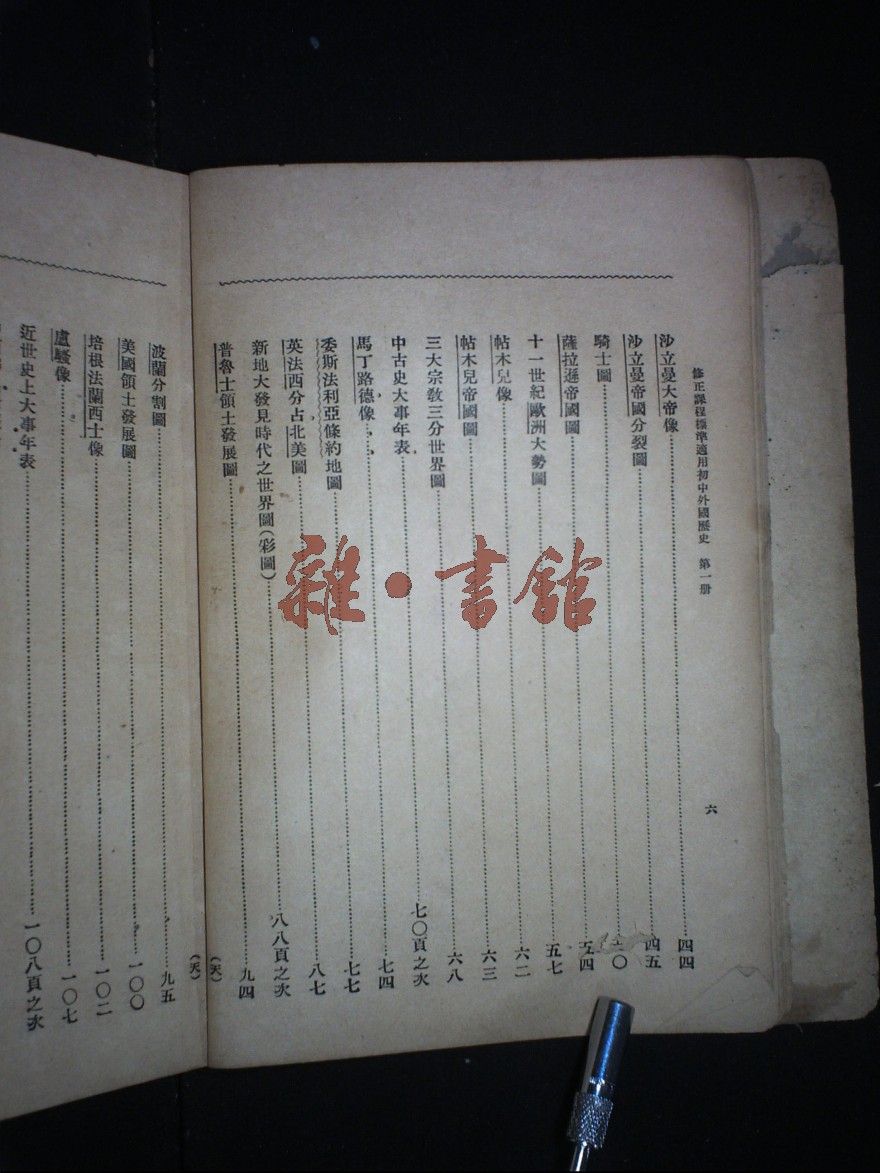 修正課程標準適用初中外國歷史 第一册
六
沙立曼大帝像……四四
沙立曼帝國分裂圖……四五
騎士圖……〇
薩拉遜帝國圖……五四
十一世紀歐洲大勢圖……五七
帖木兒像……六二
帖木兒帝國圖……六三
三大宗教三分世界圖……六八
中古史大事年表……七〇頁之次
馬丁路德像……七四
委斯法利亞條約地圖……七七
英法西分占北美圖……八七
新地大發見時代之世界圖(彩圖)……八八頁之次
普魯士領土發展圖……九四
(天)
(天)
波蘭分割圖……九五
美國領土發展圖……一〇〇
培根法蘭西士像……一〇二
盧騷像……一〇七
近世史上大事年表……一〇八頁之次
雜·書館